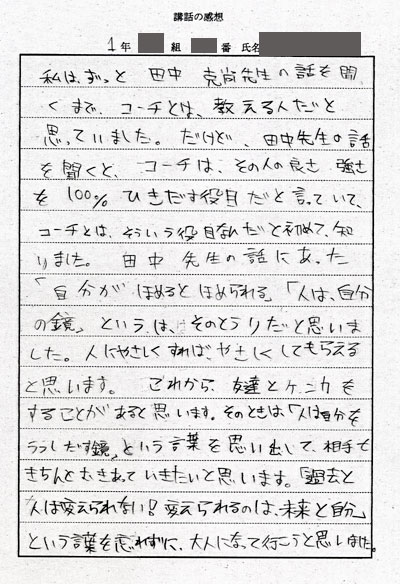 講話の感想
1年 組 番 氏名
私は、ずっと 田中 克尚先生の話を聞
くまで、コーチとは、教える人だと
思っていました。だけど、田中先生の話
を聞くと、コーチは、その人の良さ 強さ
を 100% ひきだす役目だと言っていて、
コーチとは、そういう役目なんだと初めて、知
りました。 田中 先生の話にあった
「自分が ほめると ほめられる」「人は、自分
の鏡」 というは、そのとうりだと思いま
した。人にやさしくすれば、やさしくしてもらえる
と思います。 これから、友達とケンカを
することがあると思います。そのときは、「人は自分を
うつしだす鏡」という言葉を思い出して、相手と
きちんとむきあっていきたいと思います。「過去と
人は変えられない!変えられるのは、未来と自分」
という言葉を忘れずに、大人になって行こうと思いました。